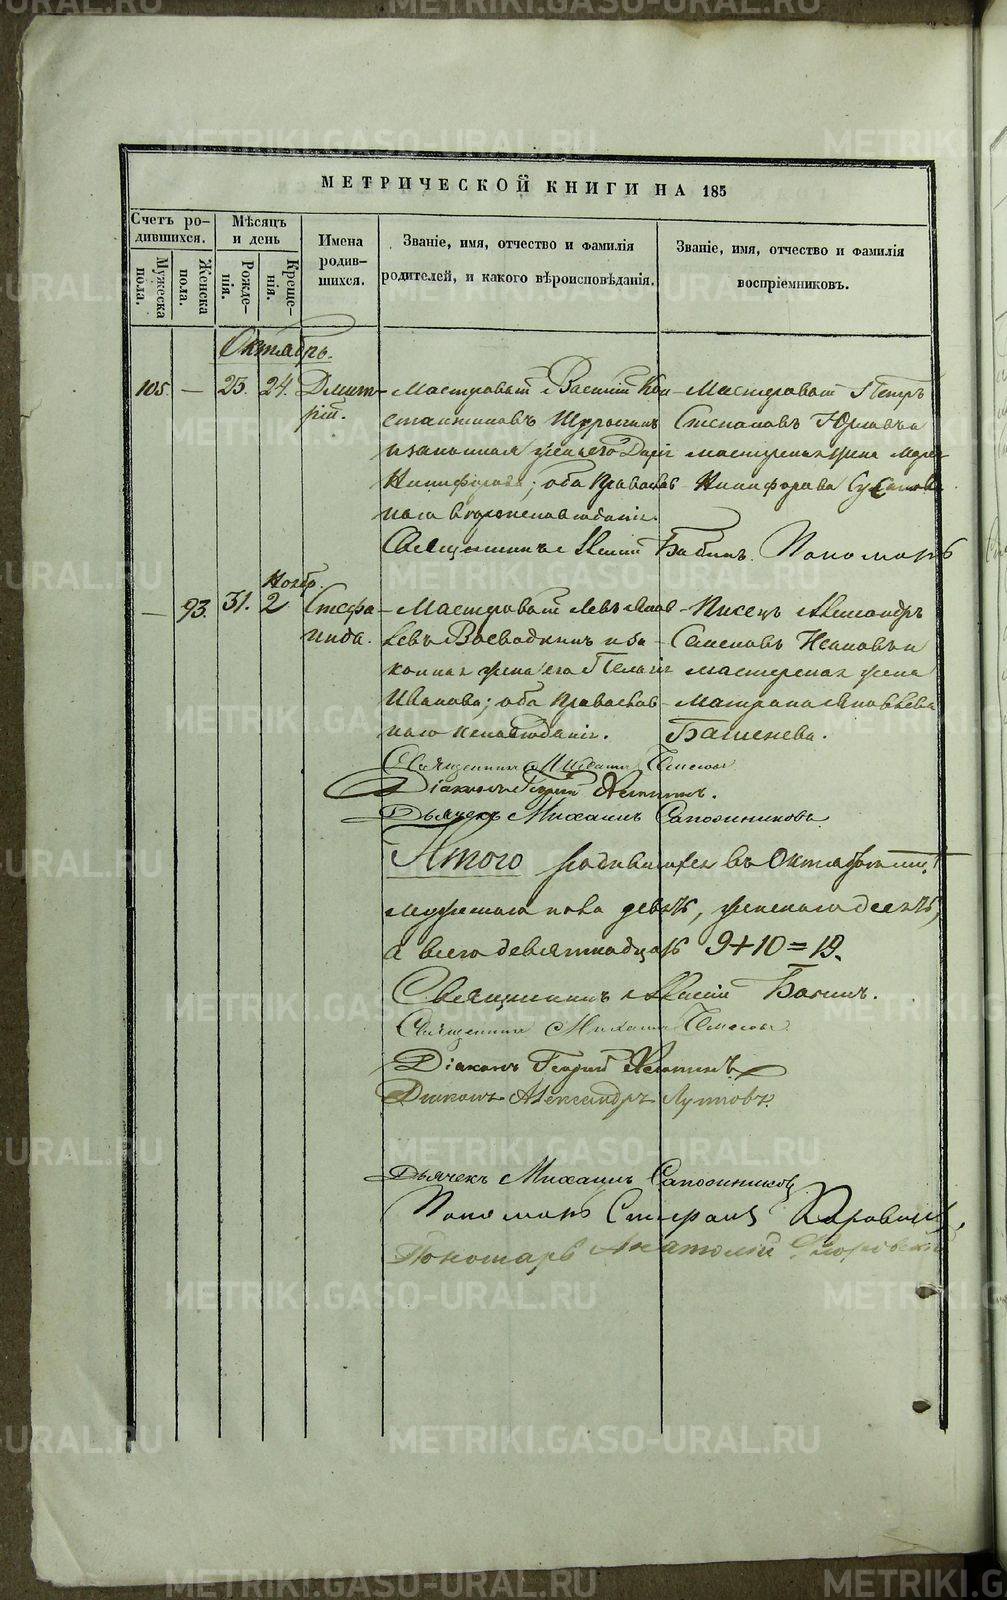 МЕТРИЧЕСКОЙ КНИГИ НА 185
Счетъ ро-
дившихся.
Мужеска
пола.
Женска
пола.
Мѣсяцъ
и день
Рожде-
нія.
Креще-
нія.
Имена
родив-
шихся.
Званіе, имя, отчество и фамилія
родителей, и какого вѣроисповѣданія.
Званіе, имя, отчество и фамилія
воспріемниковъ.
Октябрь.
105. — 23. 24. Дмит-
рій.
Мастеровой Василій Кон-
стантиновъ и
законная жена его Дарья
Никифорова; оба Православ-
наго вѣроисповѣданія.
Мастеровой Петръ
Степановъ и
мастерская жена
Никифорова
Священникъ Бабинъ. Пономарь
Ноябр.
— 93. 31. 2 Стефа-
нида.
Мастеровой Левъ Яков-
левъ Воеводинъ и за-
конная жена его Пелагія
Иванова; оба Православ-
наго исповѣданія.
Писецъ Александръ
Семеновъ и
мастерская жена
Матрона Яковлева
Баженева.
Священникъ Михаилъ
Діаконъ Георгій
Дьячекъ Михаилъ Сапожниковъ
Итого родившихся въ Октябрѣ
мужескаго пола девять, женскаго десять,
а всего девятнадцать 9+10=19.
Священникъ Бабинъ.
Священникъ Михаилъ
Діаконъ Георгій
Діаконъ Александръ Лупповъ.
Дьячекъ Михаилъ Сапожниковъ
Пономарь Стефанъ
Пономарь Анатолій
METRIKI.GASO-URAL.RU